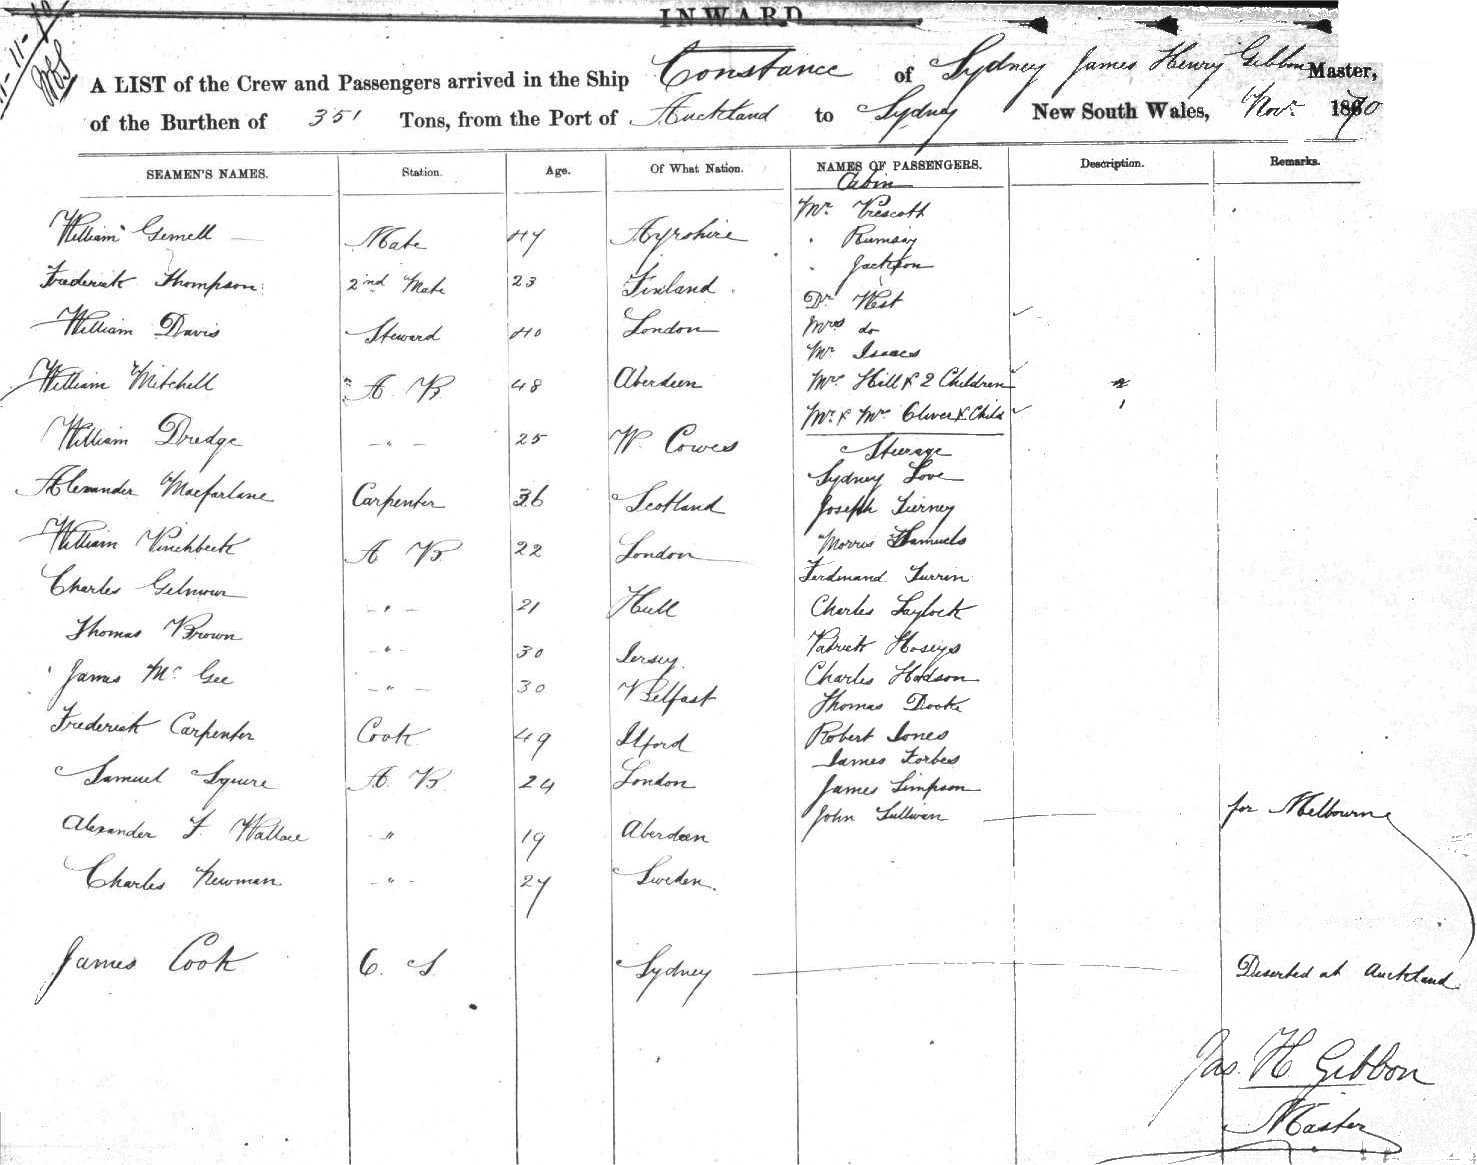 INWARD
A LIST of the Crew and Passengers arrived in the Ship Constance of Sydney James Henry Gibbon Master,
of the Burthen of 351 Tons, from the Port of Auckland to Sydney New South Wales, Novr. 1870
SEAMEN'S NAMES. Station. Age. Of What Nation. NAMES OF PASSENGERS. Description. Remarks.
Cabin
Mr. Prescott
William Gemell Mate 47 Ayrshire
" Rumsay
" Jackson
Frederick Thompson 2nd Mate 23 Finland
Dr West
William Davis Steward 40 London
Mrs do
Mr Isaacs
William Mitchell A B 48 Aberdeen
Mrs Hill & 2 Children
Mr. & Mrs Oliver & Child 1
William Dredge " 25 W. Cowes
Steerage
Sydney Love
Alexander Macfarlane Carpenter 36 Scotland
Joseph Tierney
William Pinchbeck A B 22 London
Morris Samuels
Ferdinand Turrin
Charles Gilmour " 21 Hull
Charles Laylock
Thomas Brown " 30 Jersey
Patrick Hoseys
James Mc Gee " 30 Belfast
Charles Hodson
Thomas Dooke
Frederick Carpenter Cook 49 Ilford
Robert Jones
James Forbes
Samuel Squire A. B. 24 London
James Simpson
John Sullivan for Melbourne
Alexander F Wallace " 19 Aberdeen
Charles Newman " 27 Sweden.
James Cook O. S Sydney Deserted at Auckland
Jas. H Gibbon
Master